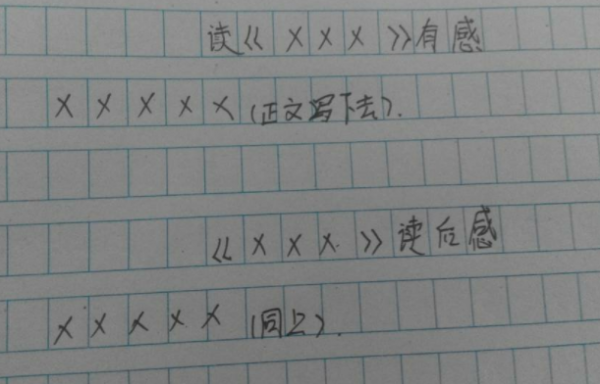 读《×××》有感
×××××(正文写下去).
《×××》读后感
×××××(同上).